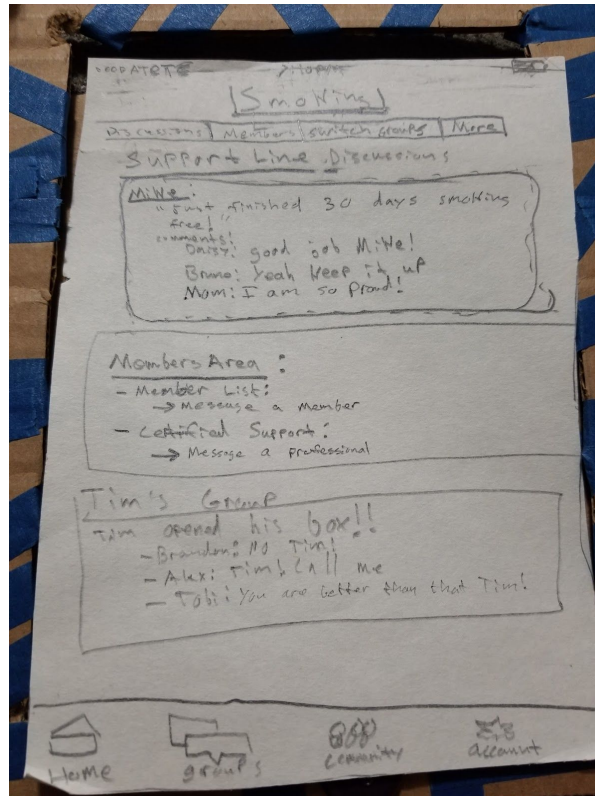 [Smoking]
Discussions | Members | switch groups | More
Support Line Discussions
Mike:
"Just finished 30 days smoking
free!"
comments:
Daisy: good job Mike!
Bruno: Yeah keep it up
Mom: I am so proud!
Members Area:
- Member List:
→ Message a member
- Certified Support:
→ Message a professional
Tim's Group
Tim opened his box!!
- Brandon: No Tim!
- Alex: Tim! Call me
- Tobi: You are better than that Tim!
Home
groups
community
account